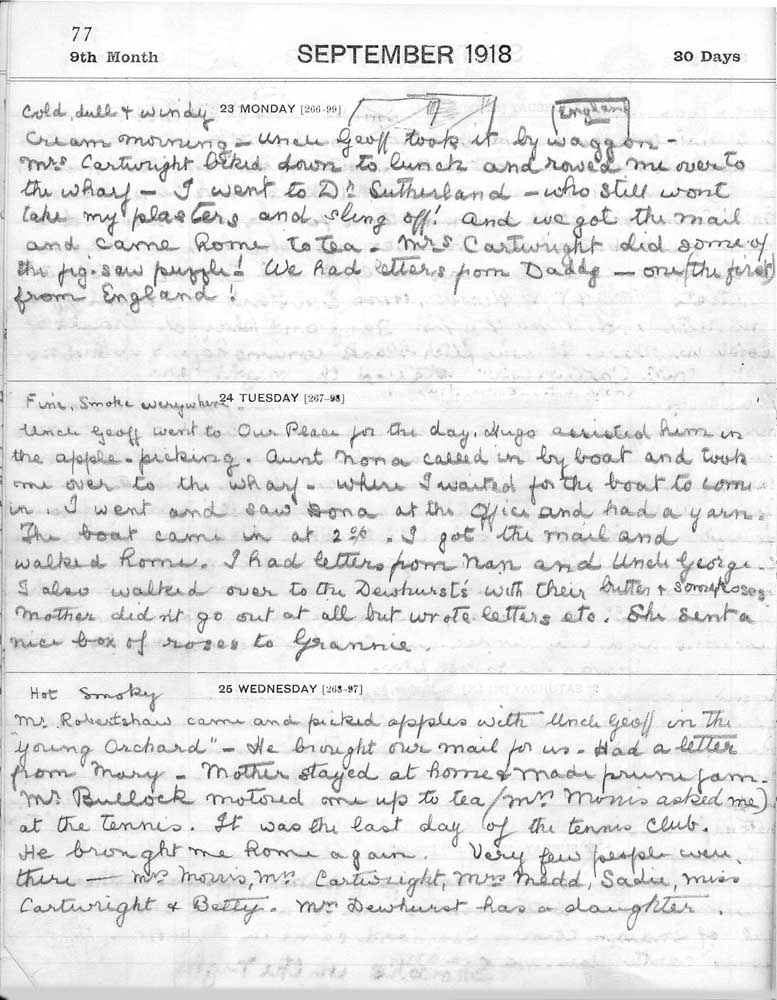 77
9th Month
SEPTEMBER 1918
30 Days
Cold, dull & windy 23 MONDAY [266-99]
England
Cream morning – Uncle Geoff took it by waggon –
Mrs Cartwright biked down to lunch and rowed me over to
the wharf – I went to Dr Sutherland – who still wont
take my plasters and sling off! And we got the mail
and came home to tea – Mrs Cartwright did some of
the jig-saw puzzle! We had letters from Daddy – one (the first)
from England!
Fine, Smoke everywhere 24 TUESDAY [267-98]
Uncle Geoff went to Our Place for the day. Hugo assisted him in
the apple-picking. Aunt Nona called in by boat and took
me over to the wharf – where I waited for the boat to come
in. I went and saw Dona at the office and had a yarn.
The boat came in at 2 . I got the mail and
walked home. I had letters from Nan and Uncle George.
I also walked over to the Dewhurst's with their butter & some roses
Mother did n't go out at all but wrote letters etc. She sent a
nice box of roses to Grannie.
Hot Smoky 25 WEDNESDAY [268-97]
Mr. Robertshaw came and picked apples with Uncle Geoff in the
"young Orchard" – He brought our mail for us – Had a letter
from Mary – Mother stayed at home & made prune jam.
Mr Bullock motored me up to tea (Mrs Morris asked me)
at the tennis. It was the last day of the tennis club.
He brought me home again. Very few people were
there – Mrs Morris, Mrs Cartwright, Mrs Medd, Sadie, Miss
Cartwright & Betty. Mrs Dewhurst has a daughter.